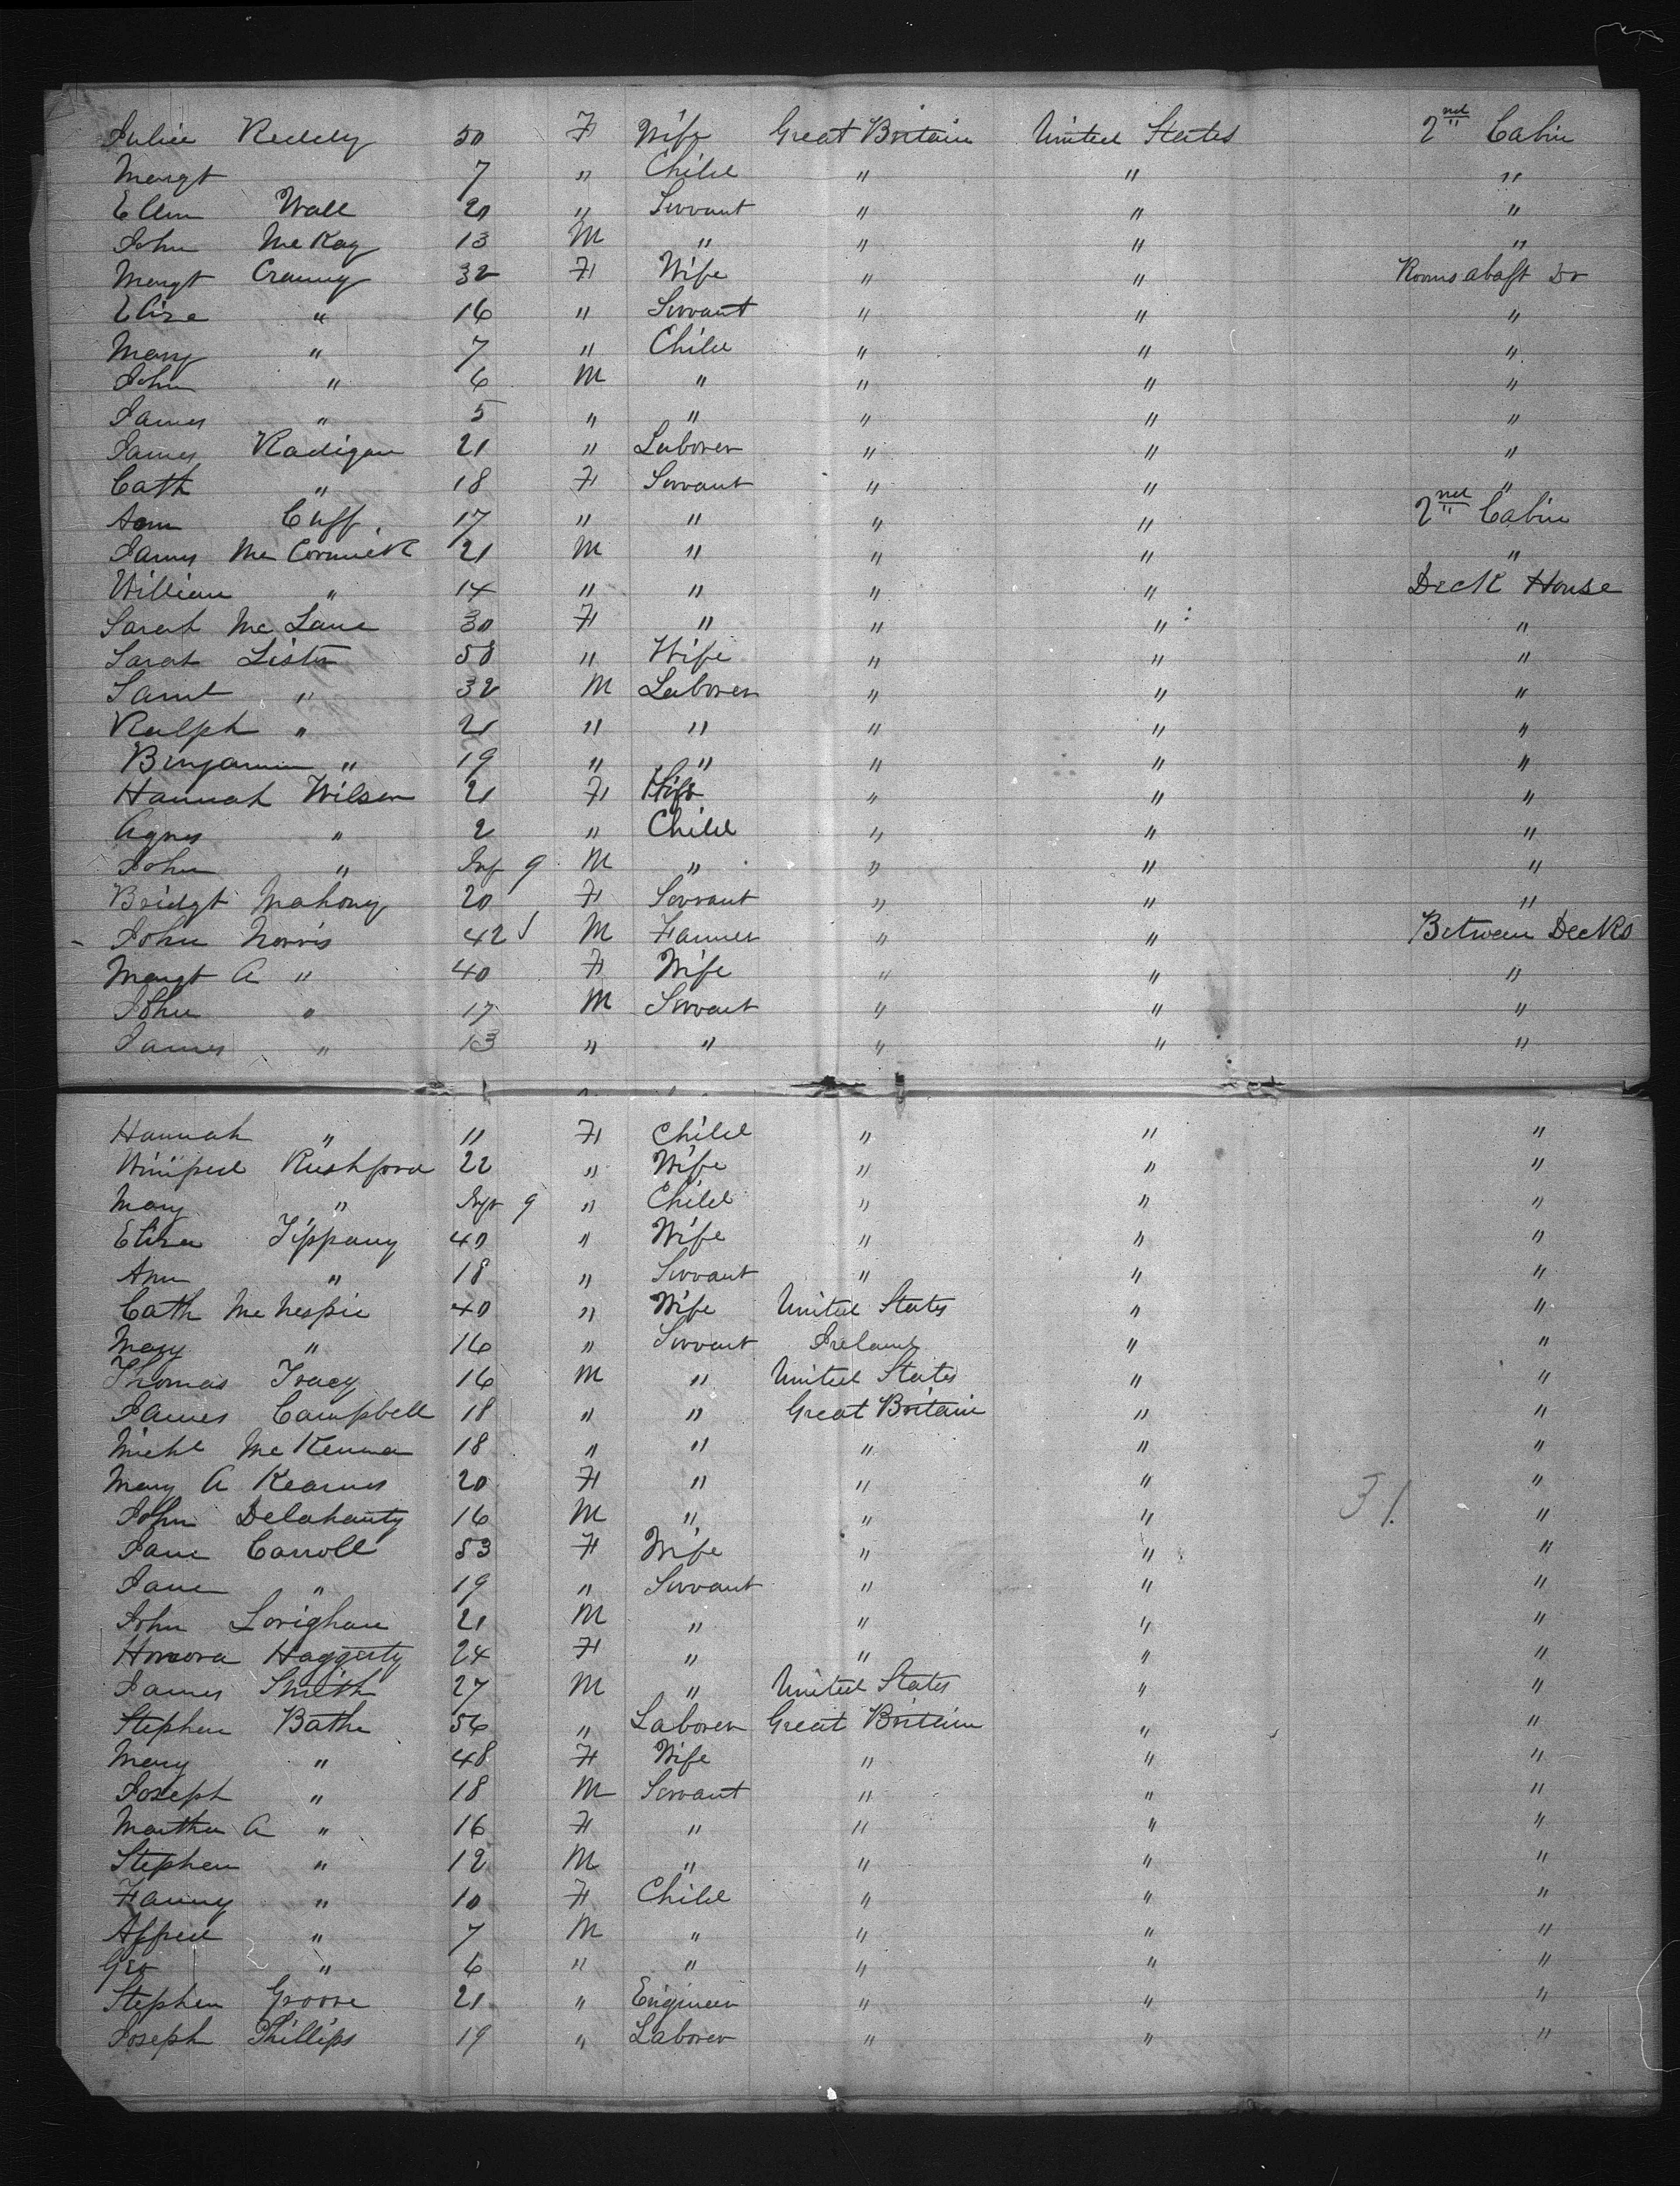 Julia Reddy 50 F Wife Great Britain United States 2nd Cabin
Margt 7 " Child " " "
Ellen Wall 20 " Servant " " "
John McKay 13 M " " " "
Margt Cranny 32 F Wife " " Rooms abaft Do
Eliza " 16 " Servant " " "
Mary " 7 " Child " " "
John " 6 M " " " "
James " 5 " " " " "
James Radigan 21 " Laborer " " "
Cath " 18 F Servant " " "
Ann Cuff 17 " " " " 2nd Cabin
James McCormick 21 M " " " "
William " 14 " " " " Deck House
Sarah McLane 30 F " " " "
Sarah Lister 58 " Wife " " "
Saml " 32 M Laborer " " "
Ralph " 21 " " " " "
Benjamin " 19 " " " " "
Hannah Wilson 21 F Wife " " "
Agnes " 2 " Child " " "
John " Inf 9 M " " " "
Bridgt Mahony 20 F Servant " " "
John Norris 42 M Farmer " " Between Decks
Margt A " 40 F Wife " " "
John " 17 M Servant " " "
James " 13 " " " " "
Hannah " 11 F Child " " "
Winifred Rushford 22 " Wife " " "
Mary " Inft 9 " Child " " "
Eliza Tippany 40 " Wife " " "
Ann " 18 " Servant " " "
Cath McNespie 40 " Wife United States " "
Mary " 16 " Servant Ireland " "
Thomas Tracy 16 M " United States " "
James Campbell 18 " " Great Britain " "
Michl McKenna 18 " " " " "
Mary A Kearns 20 F " " " "
31.
John Delahanty 16 M " " " "
Jane Carroll 53 F Wife " " "
Jane " 19 " Servant " " "
John Lorighan 21 M " " " "
Honora Haggerty 24 F " " " "
James Smith 27 M " United States " "
Stephen Bathe 56 " Laborer Great Britain " "
Mary " 48 F Wife " " "
Joseph " 18 M Servant " " "
Martha A " 16 F " " " "
Stephen " 12 M " " " "
Fanny " 10 F Child " " "
Alfred " 7 M " " " "
Geo " 6 " " " " "
Stephen Groove 21 " Engineer " " "
Joseph Phillips 19 " Laborer " " "